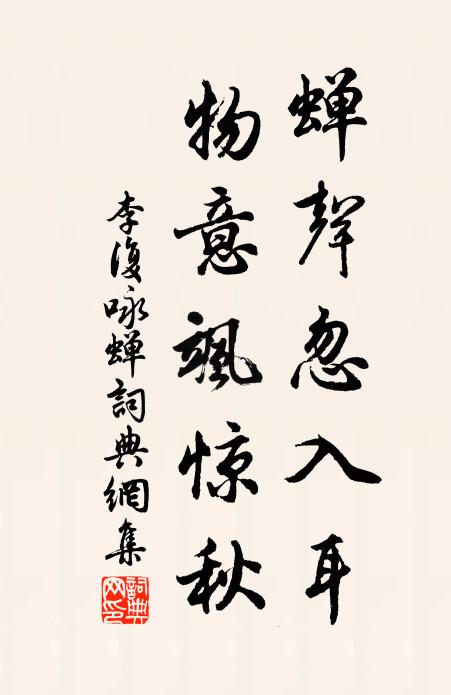 蝉聲忽入耳
物意颯惊秋
李復咏蝉詞典網集
詞典
网印